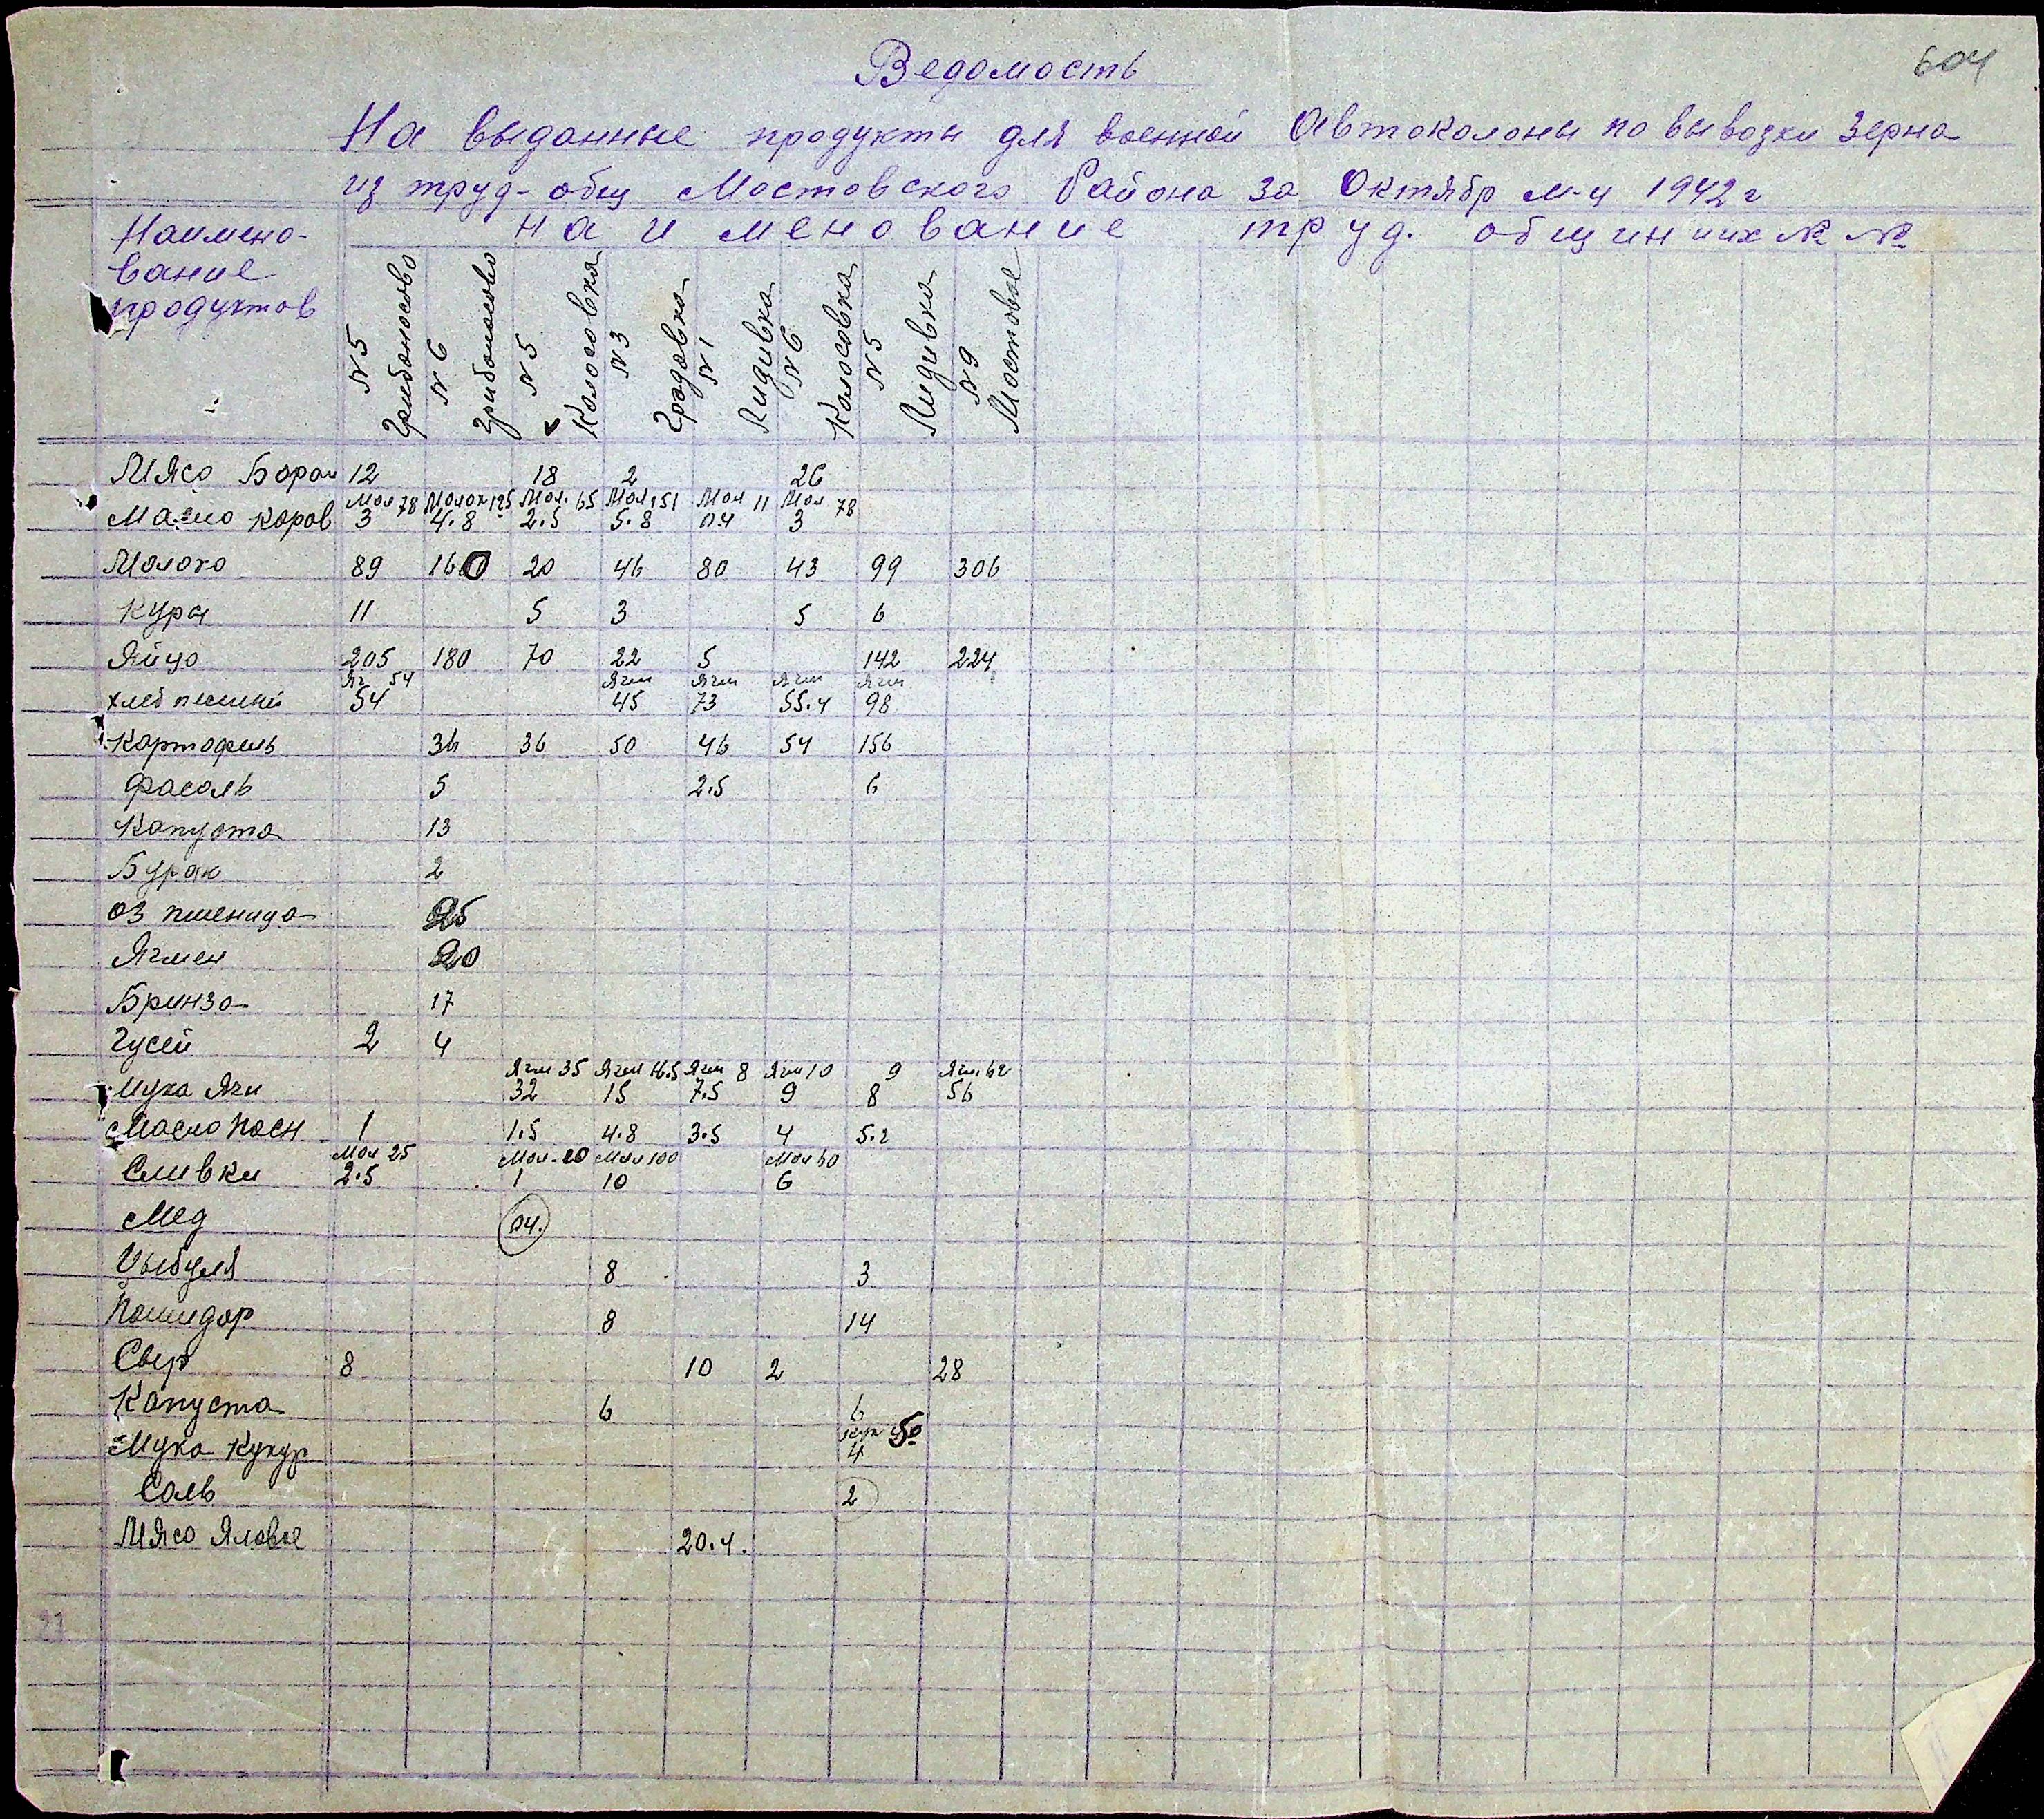 604
Ведомость
На выданные продукты для военной Автоколоны по вывозки зерна
из труд-общ Мостовского Района за Октябр м-ц 1942 г
Наимено-вание продуктов
наименование труд. общин их № №
N5 Грибоносово
N6 Грибоносово
N5 Колосовка
N3 Градовка
N1 Лидивка
N6 Колосовка
N5 Лидивка
N9 Мостовое
Мясо Боран 12 18 2 26
Мол 78 Молок 125 Мол. 65 Мол 151 Мол 11 Мол 78
Масло коров 3 4.8 2.5 5.8 0.4 3
Молоко 89 160 20 46 80 43 99 306
Кури 11 5 3 5 6
Яйцо 205 180 70 22 5 142 224
Яч 54 Ячм Ячм Ячм Ячм
хлеб печений 54 45 73 55.4 98
Картофель 36 36 50 46 54 156
Фасоль 5 2.5 6
Капуста 13
Бурак 2
Оз пшеница 25
Ячмен 20
Бринза 17
Гусей 2 4
Ячм 35 Ячм 16.5 Ячм 8 Ячм 10 9 Ячм 62
Мука Ячн 32 15 7.5 9 8 56
Масло Посн 1 1.5 4.8 3.5 4 5.2
Мол 25 Мол-10 Мол 100 Мол 60
Сливки 2.5 1 10 6
Мед 04.
Цыбуля 8 3
Помидор 8 14
Сыр 8 10 2 28
Капуста 6 6
Кук 50
Мука Кукур 4
Соль 2
Мясо Яловое 20.4.
21